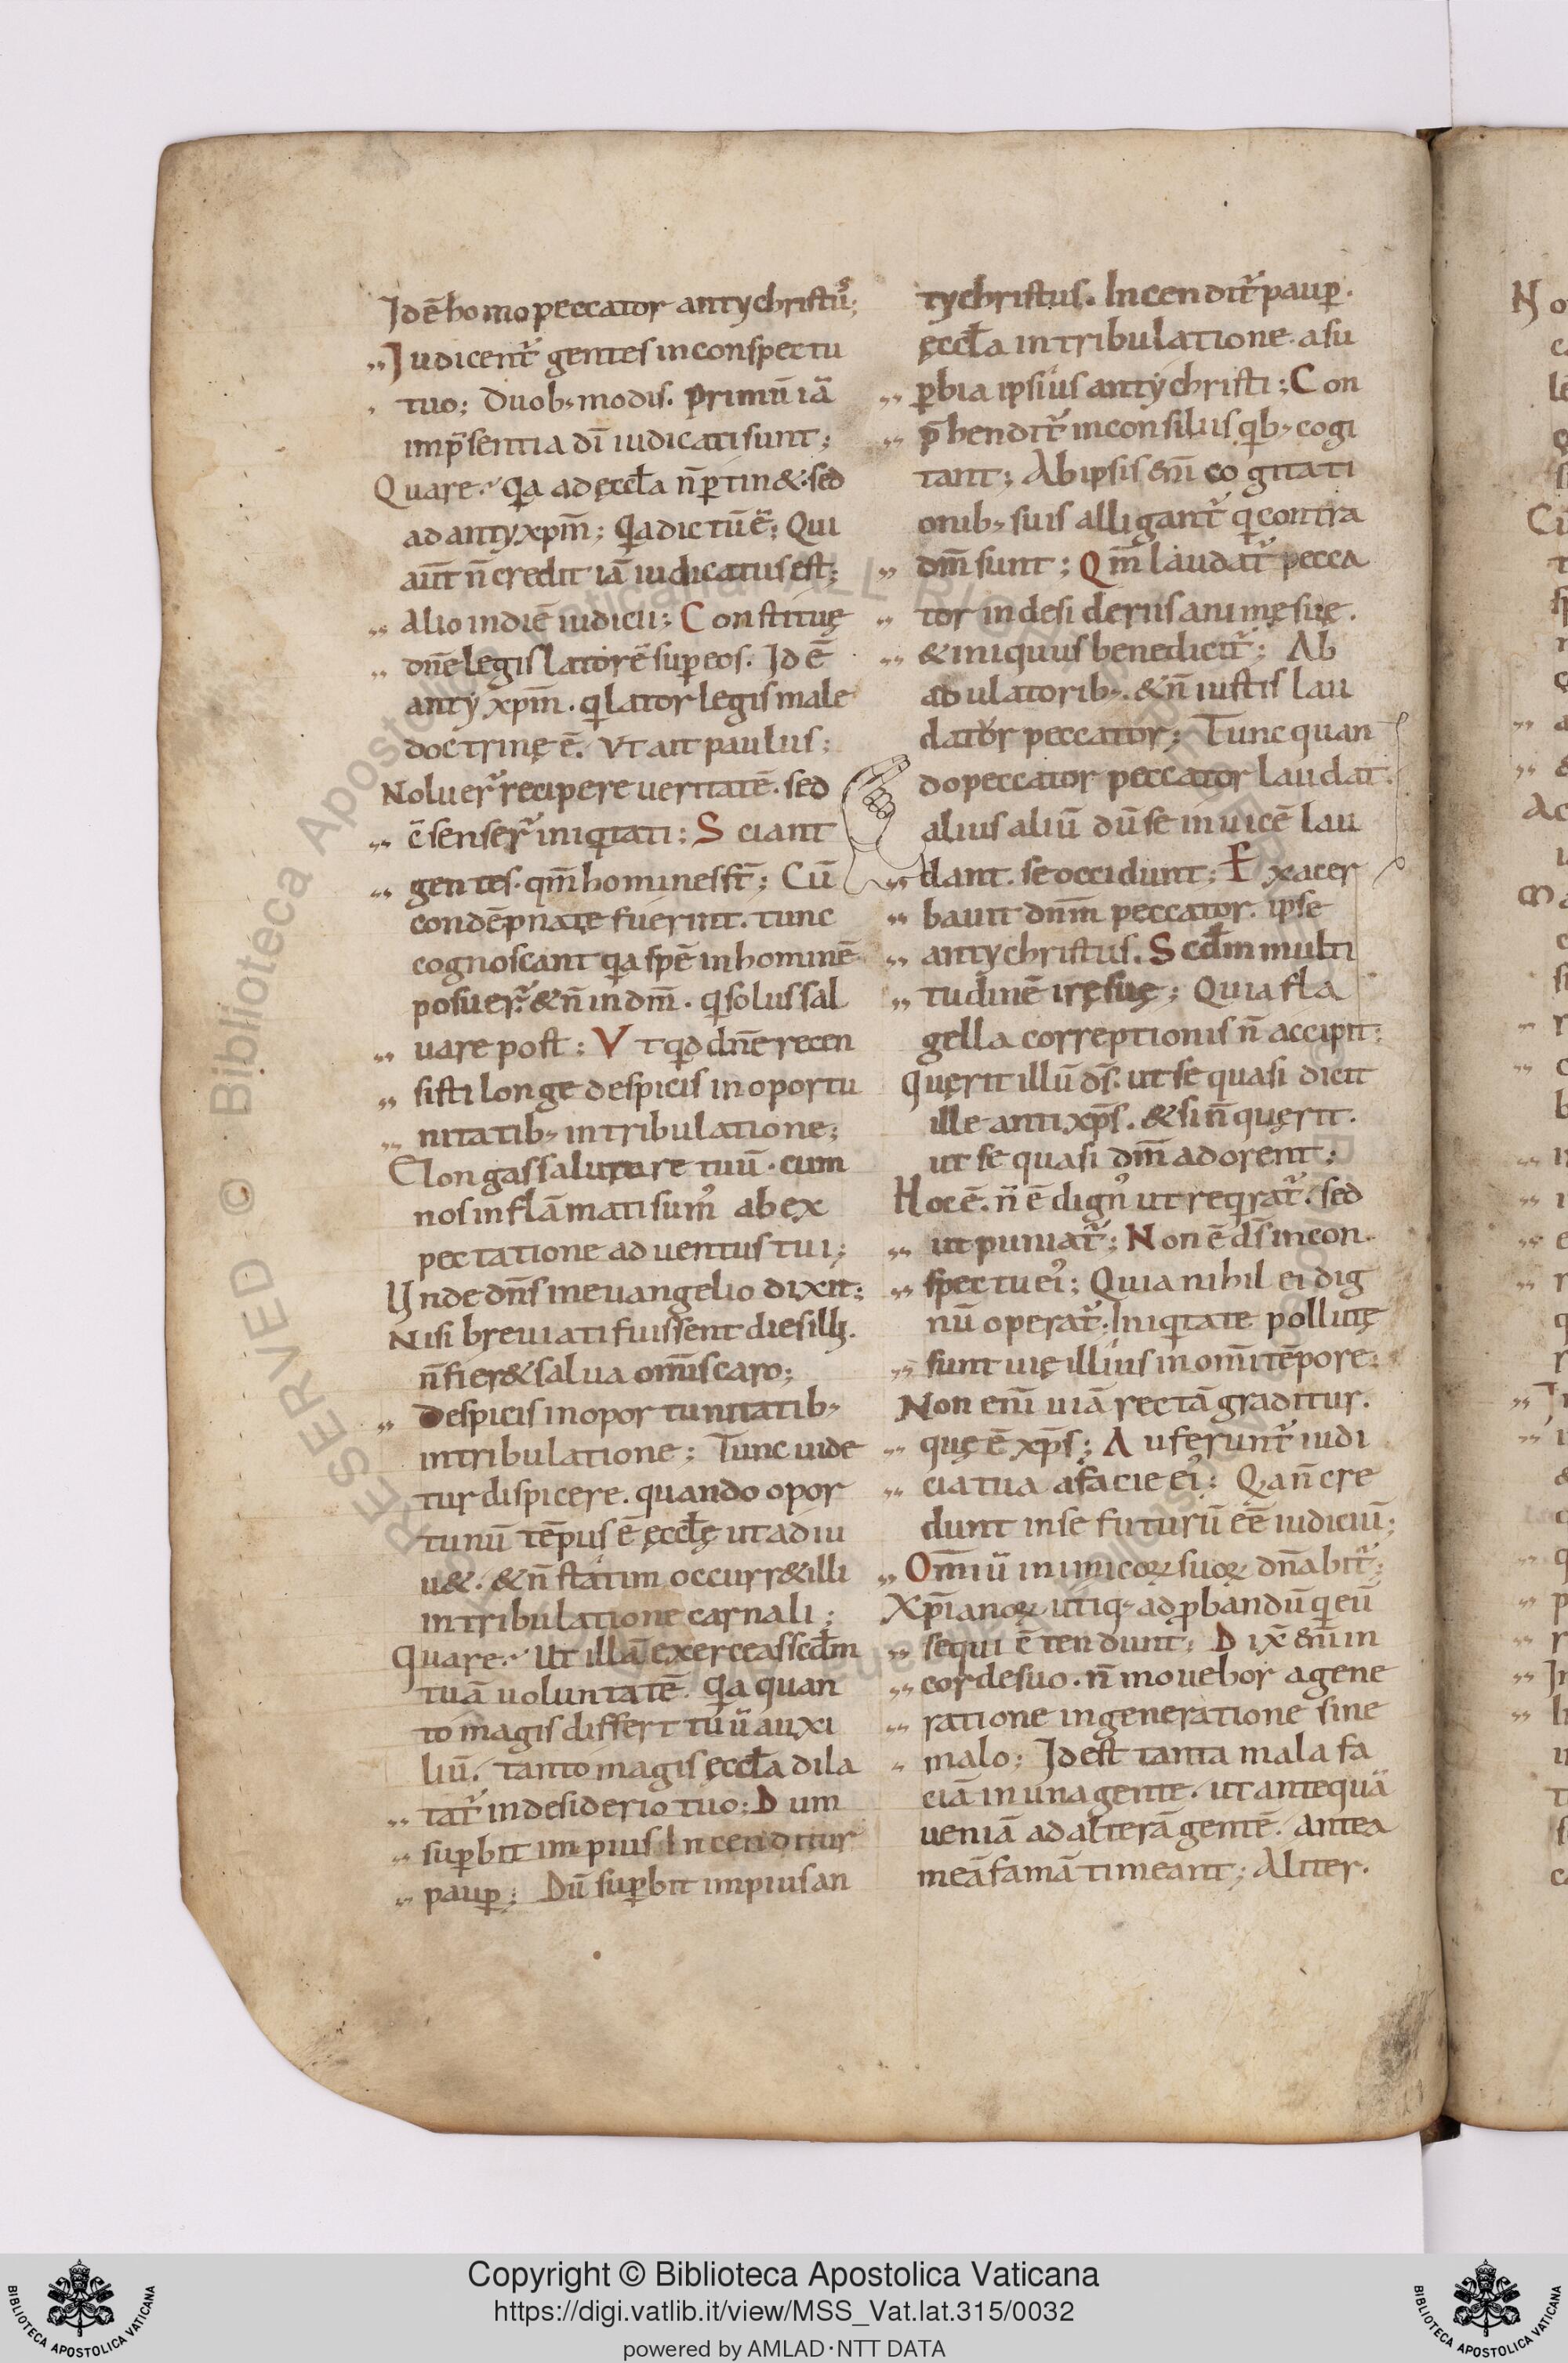 Idē homo peccator antychristus̉;
Iudicent᷑ gentes in conspectu
tuo; Duob; modis. Primū iā
in p̄sentia dī iudicati sunt;
Quare. Qa ad ęccƚa n̄ ꝑtin&. sed
ad antyxp̄m; Qa dictū ē; Qui
aūt n̄ credit iā iudicatus est;
Alio in diē iudicii; Constituę
dn̄e legislatorē sup eos. Id ē
anty xp̄m. qi lator legis male
doctrinę ē. Vt ait paulus;
Noluer᷑ recipere ueritatē. sed
c̄senser᷑ iniqitati; Sciant
gentes. qm̄ homines st̄; Cū
condēpnatę fuerint. tunc
cognoscant qa spē in hominē
posuer᷑. & n̄ in dm̄. qi solus sal
uare post; Vt qid dn̄e recen
sisti longe despicis in oportu
nitatib; in tribulatione;
Elongas salutare tuū. cum
nos inflāmati sum᷒ ab ex
pectatione aduentus tui;
Unde dn̄s in euangelio dixit;
Nisi breuiati fuissent dies illi.
n̄ fier& salua omīs caro;
Despicis in oportunitatib;
in tribulatione; Tunc uide
tur dispicere. quando opor
tunū tēpus ē ęccƚę ut adiu
u&. & n̄ statim occurr& illi
in tribulatione carnali;
Quare. Ut illā exerceas scdm̄
tuā uoluntatē. Qa quan
to magis differt tuū auxi
liū. tanto magis ęccƚa dila
tat᷑ in desiderio tuo; Dum
suꝑbit impius Incenditur
pauꝑ; Dū suꝑbit impius an
tychristus. Incendit᷑ pauꝑ.
ęccƚa in tribulatione. a su
ꝑbia ipsius antychristi; Con
p̄hendit᷑ in consiliis qib; cogi
tant; Ab ipsis enī cogitati
onib; suis alligant᷑ qi contra
dm̄ sunt; Qm̄ laudat᷑ pecca
tor in desideriis animę suę.
& iniquus benedicit᷑; Ab
adulatorib;. & n̄ iustis lau
dator peccator; Tunc quan
do peccator peccator laudat.
alius aliū dū se inuicē lau
dant. se occidunt; Exacer
bauit dnm̄ peccator. ipse
antychristus. Scdm̄ multi
tudinē irę suę; Quia fla
gella correptionis n̄ accipit;
Quęrit illū ds̄. ut se quasi dicit
ille antixp̄s. & si n̄ quęrit.
ut se quasi dm̄ adorent;
Hoc ē. n̄ ē dign᷒ ut reqirat᷑. sed
ut puniat᷑; Non ē ds̄ in con
spectu ei᷒; Quia nihil ei dig
nū operat᷑. Iniqitate pollutę
sunt uię illius in omī tēpore;
Non enī uiā rectā graditur.
quę ē xp̄s; Auferunt᷑ iudi
cia tua a facie ei᷒; Qa n̄ cre
dunt in se futurū eē iudiciū;
Omīū inimicoꝝ suoꝝ dn̄abit᷑;
Xp̄ianoꝝ utiq; ad ꝓbandū qi eū
sequi c̄tendunt; Dix̄ enī in
corde suo. n̄ mouebor a gene
ratione in generatione sine
malo; Id est tanta mala fa
ciā in una gente. ut antequā
ueniā ad alterā gentē. antea
meā famā timeant; Aliter.
Copyright © Biblioteca Apostolica Vaticana
https://digi.vatlib.it/view/MSS_Vat.lat.315/0032
powered by AMLAD·NTT DATA